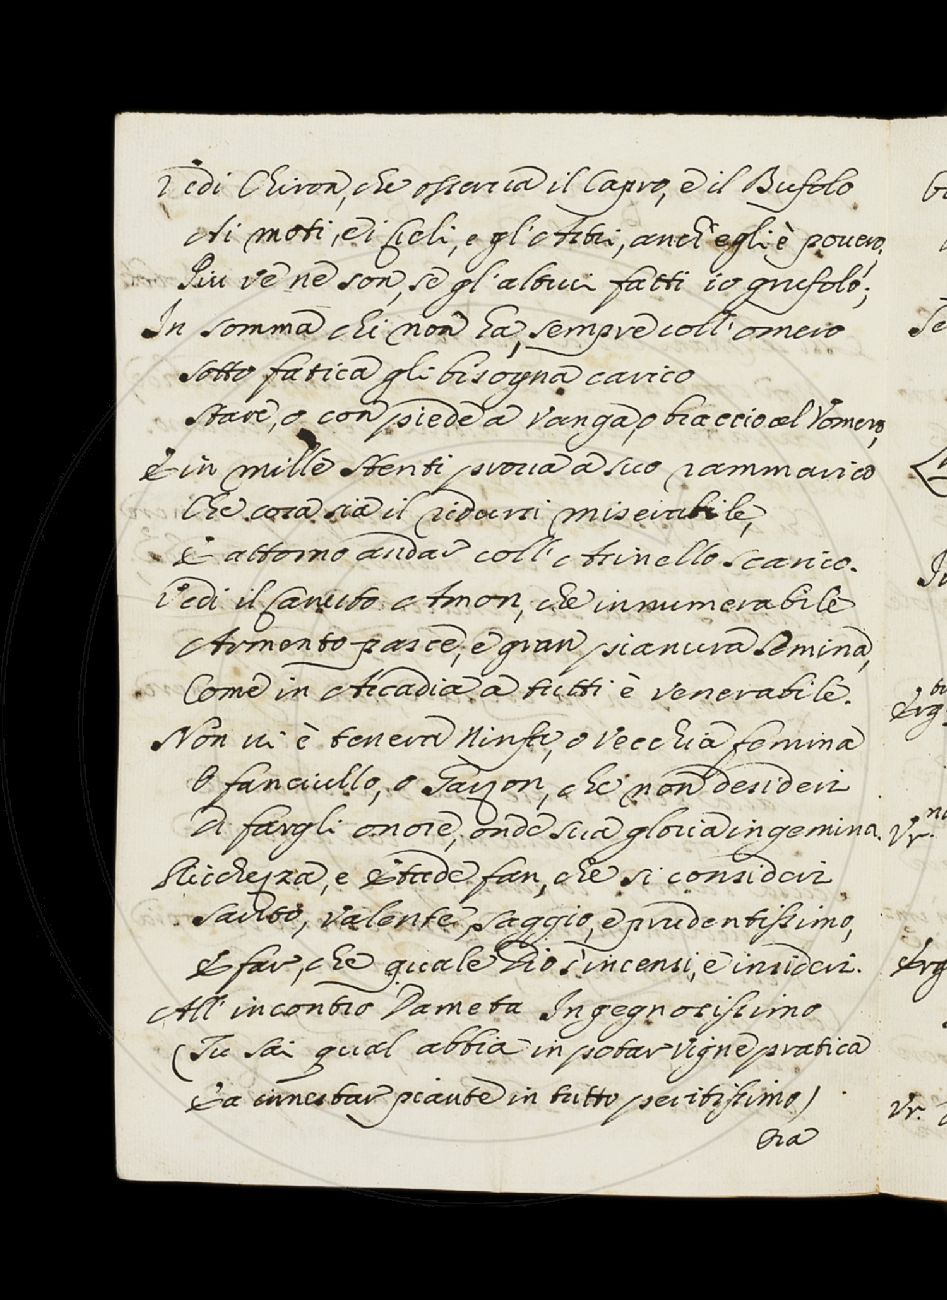 Vedi Chiron, che osserva il Capro, e il Bufolo
Ai moti, e i Cieli, e gl'Astri, anch'egli è povero,
Piu ve ne son, se gl'altrui fatti io grufolo;
In somma chi non ha, sempre coll'omero
Sotto fatica gli bisogna carico
Stare, o con piede a Vanga, o braccio al Vomero,
E in mille stenti prova a suo rammarico
Che cosa sia il ridursi miserabile,
E attorno andar coll'Asinello scarico.
Vedi il Canuto Amon, che innumerabile
Armento pasce, e gran pianura Semina,
Come in Arcadia a tutti è venerabile.
Non vi è tenera Ninfa, o Vecchia femina
O fanciullo, o Garzon, che non desideri
Di fargli onore, onde sua gloria ingemina.
Ricchezza, e Etade fan, che si consideri
Savito, Valente, saggio, e prudentissimo,
E far, che quale Dio s'incensi, e insideri.
All'incontro Dameta Ingegnosissimo
(Tu sai qual abbia in potar Vigne pratica
E a innestar piante in tutto peritissimo)
Se
Erg
Vr.
Erg
Vr.